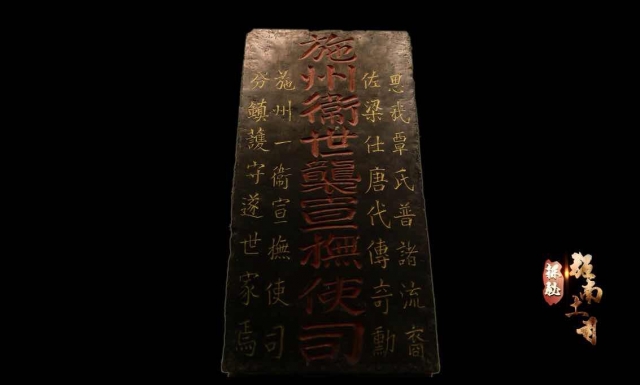 思我覃氏普諸流裔
佐梁仕唐代傳奇勳
施州衞世襲宣撫使司
施州一衞宣撫使司
分鎮護守遂世家焉
探秘
施南土司